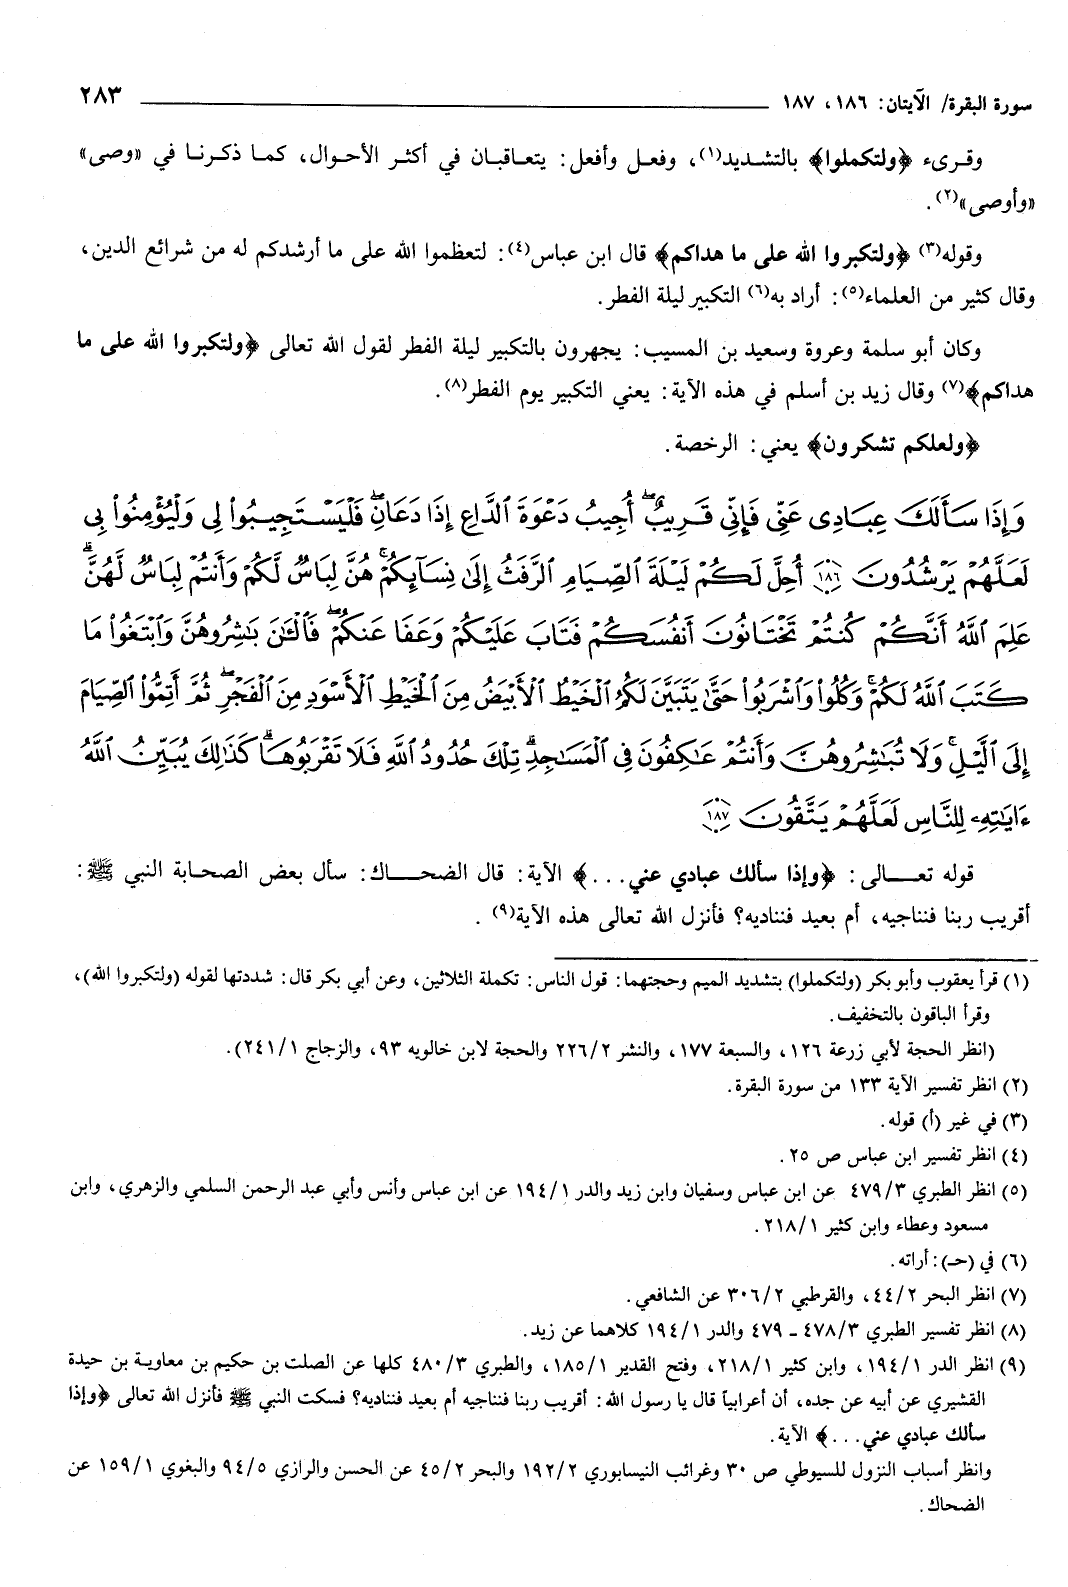 سورة البقرة/ الآيتان: ١٨٦، ١٨٧ ٢٨٣
وقرىء ﴿ولتكملوا﴾ بالتشديد(١)، وفعل وأفعل: يتعاقبان في أكثر الأحوال، كما ذكرنا في «وصى»
«وأوصى»(٢).
وقوله(٣) ﴿ولتكبروا الله على ما هداكم﴾ قال ابن عباس(٤): لتعظموا الله على ما أرشدكم له من شرائع الدين،
وقال كثير من العلماء(٥): أراد به(٦) التكبير ليلة الفطر.
وكان أبو سلمة وعروة وسعيد بن المسيب: يجهرون بالتكبير ليلة الفطر لقول الله تعالى ﴿ولتكبروا الله على ما
هداكم﴾(٧) وقال زيد بن أسلم في هذه الآية: يعني التكبير يوم الفطر(٨).
﴿ولعلكم تشكرون﴾ يعني: الرخصة.
وَإِذَا سَأَلَكَ عِبَادِى عَنِّى فَإِنِّى قَرِيبٌ ۖ أُجِيبُ دَعْوَةَ ٱلدَّاعِ إِذَا دَعَانِ ۖ فَلْيَسْتَجِيبُوا۟ لِى وَلْيُؤْمِنُوا۟ بِى
لَعَلَّهُمْ يَرْشُدُونَ ١٨٦ أُحِلَّ لَكُمْ لَيْلَةَ ٱلصِّيَامِ ٱلرَّفَثُ إِلَىٰ نِسَآئِكُمْ ۚ هُنَّ لِبَاسٌ لَّكُمْ وَأَنتُمْ لِبَاسٌ لَّهُنَّ ۗ
عَلِمَ ٱللَّهُ أَنَّكُمْ كُنتُمْ تَخْتَانُونَ أَنفُسَكُمْ فَتَابَ عَلَيْكُمْ وَعَفَا عَنكُمْ ۖ فَٱلْـَٰٔنَ بَٰشِرُوهُنَّ وَٱبْتَغُوا۟ مَا
كَتَبَ ٱللَّهُ لَكُمْ ۚ وَكُلُوا۟ وَٱشْرَبُوا۟ حَتَّىٰ يَتَبَيَّنَ لَكُمُ ٱلْخَيْطُ ٱلْأَبْيَضُ مِنَ ٱلْخَيْطِ ٱلْأَسْوَدِ مِنَ ٱلْفَجْرِ ۖ ثُمَّ أَتِمُّوا۟ ٱلصِّيَامَ
إِلَى ٱلَّيْلِ ۚ وَلَا تُبَٰشِرُوهُنَّ وَأَنتُمْ عَٰكِفُونَ فِى ٱلْمَسَٰجِدِ ۗ تِلْكَ حُدُودُ ٱللَّهِ فَلَا تَقْرَبُوهَا ۗ كَذَٰلِكَ يُبَيِّنُ ٱللَّهُ
ءَايَٰتِهِۦ لِلنَّاسِ لَعَلَّهُمْ يَتَّقُونَ ١٨٧
قوله تعالى: ﴿وإذا سألك عبادي عني...﴾ الآية: قال الضحاك: سأل بعض الصحابة النبي ﷺ:
أقريب ربنا فنناجيه، أم بعيد فنناديه؟ فأنزل الله تعالى هذه الآية(٩).
(١) قرأ يعقوب وأبو بكر (ولتكملوا) بتشديد الميم وحجتهما: قول الناس: تكملة الثلاثين، وعن أبي بكر قال: شددتها لقوله (ولتكبروا الله)،
وقرأ الباقون بالتخفيف.
(انظر الحجة لأبي زرعة ١٢٦، والسبعة ١٧٧، والنشر ٢٢٦/٢ والحجة لابن خالويه ٩٣، والزجاج ٢٤١/١).
(٢) انظر تفسير الآية ١٣٣ من سورة البقرة.
(٣) في غير (أ) قوله.
(٤) انظر تفسير ابن عباس ص ٢٥.
(٥) انظر الطبري ٤٧٩/٣ عن ابن عباس وسفيان وابن زيد والدر ١٩٤/١ عن ابن عباس وأنس وأبي عبد الرحمن السلمي والزهري، وابن
مسعود وعطاء وابن كثير ٢١٨/١.
(٦) في (حـ): أراته.
(٧) انظر البحر ٤٤/٢، والقرطبي ٣٠٦/٢ عن الشافعي.
(٨) انظر تفسير الطبري ٤٧٨/٣ - ٤٧٩ والدر ١٩٤/١ كلاهما عن زيد.
(٩) انظر الدر ١٩٤/١، وابن كثير ٢١٨/١، وفتح القدير ١٨٥/١، والطبري ٤٨٠/٣ كلها عن الصلت بن حكيم بن معاوية بن حيدة
القشيري عن أبيه عن جده، أن أعرابياً قال يا رسول الله: أقريب ربنا فنناجيه أم بعيد فنناديه؟ فسكت النبي ﷺ فأنزل الله تعالى ﴿وإذا
سألك عبادي عني...﴾ الآية.
وانظر أسباب النزول للسيوطي ص ٣٠ وغرائب النيسابوري ١٩٢/٢ والبحر ٤٥/٢ عن الحسن والرازي ٩٤/٥ والبغوي ١٥٩/١ عن
الضحاك.